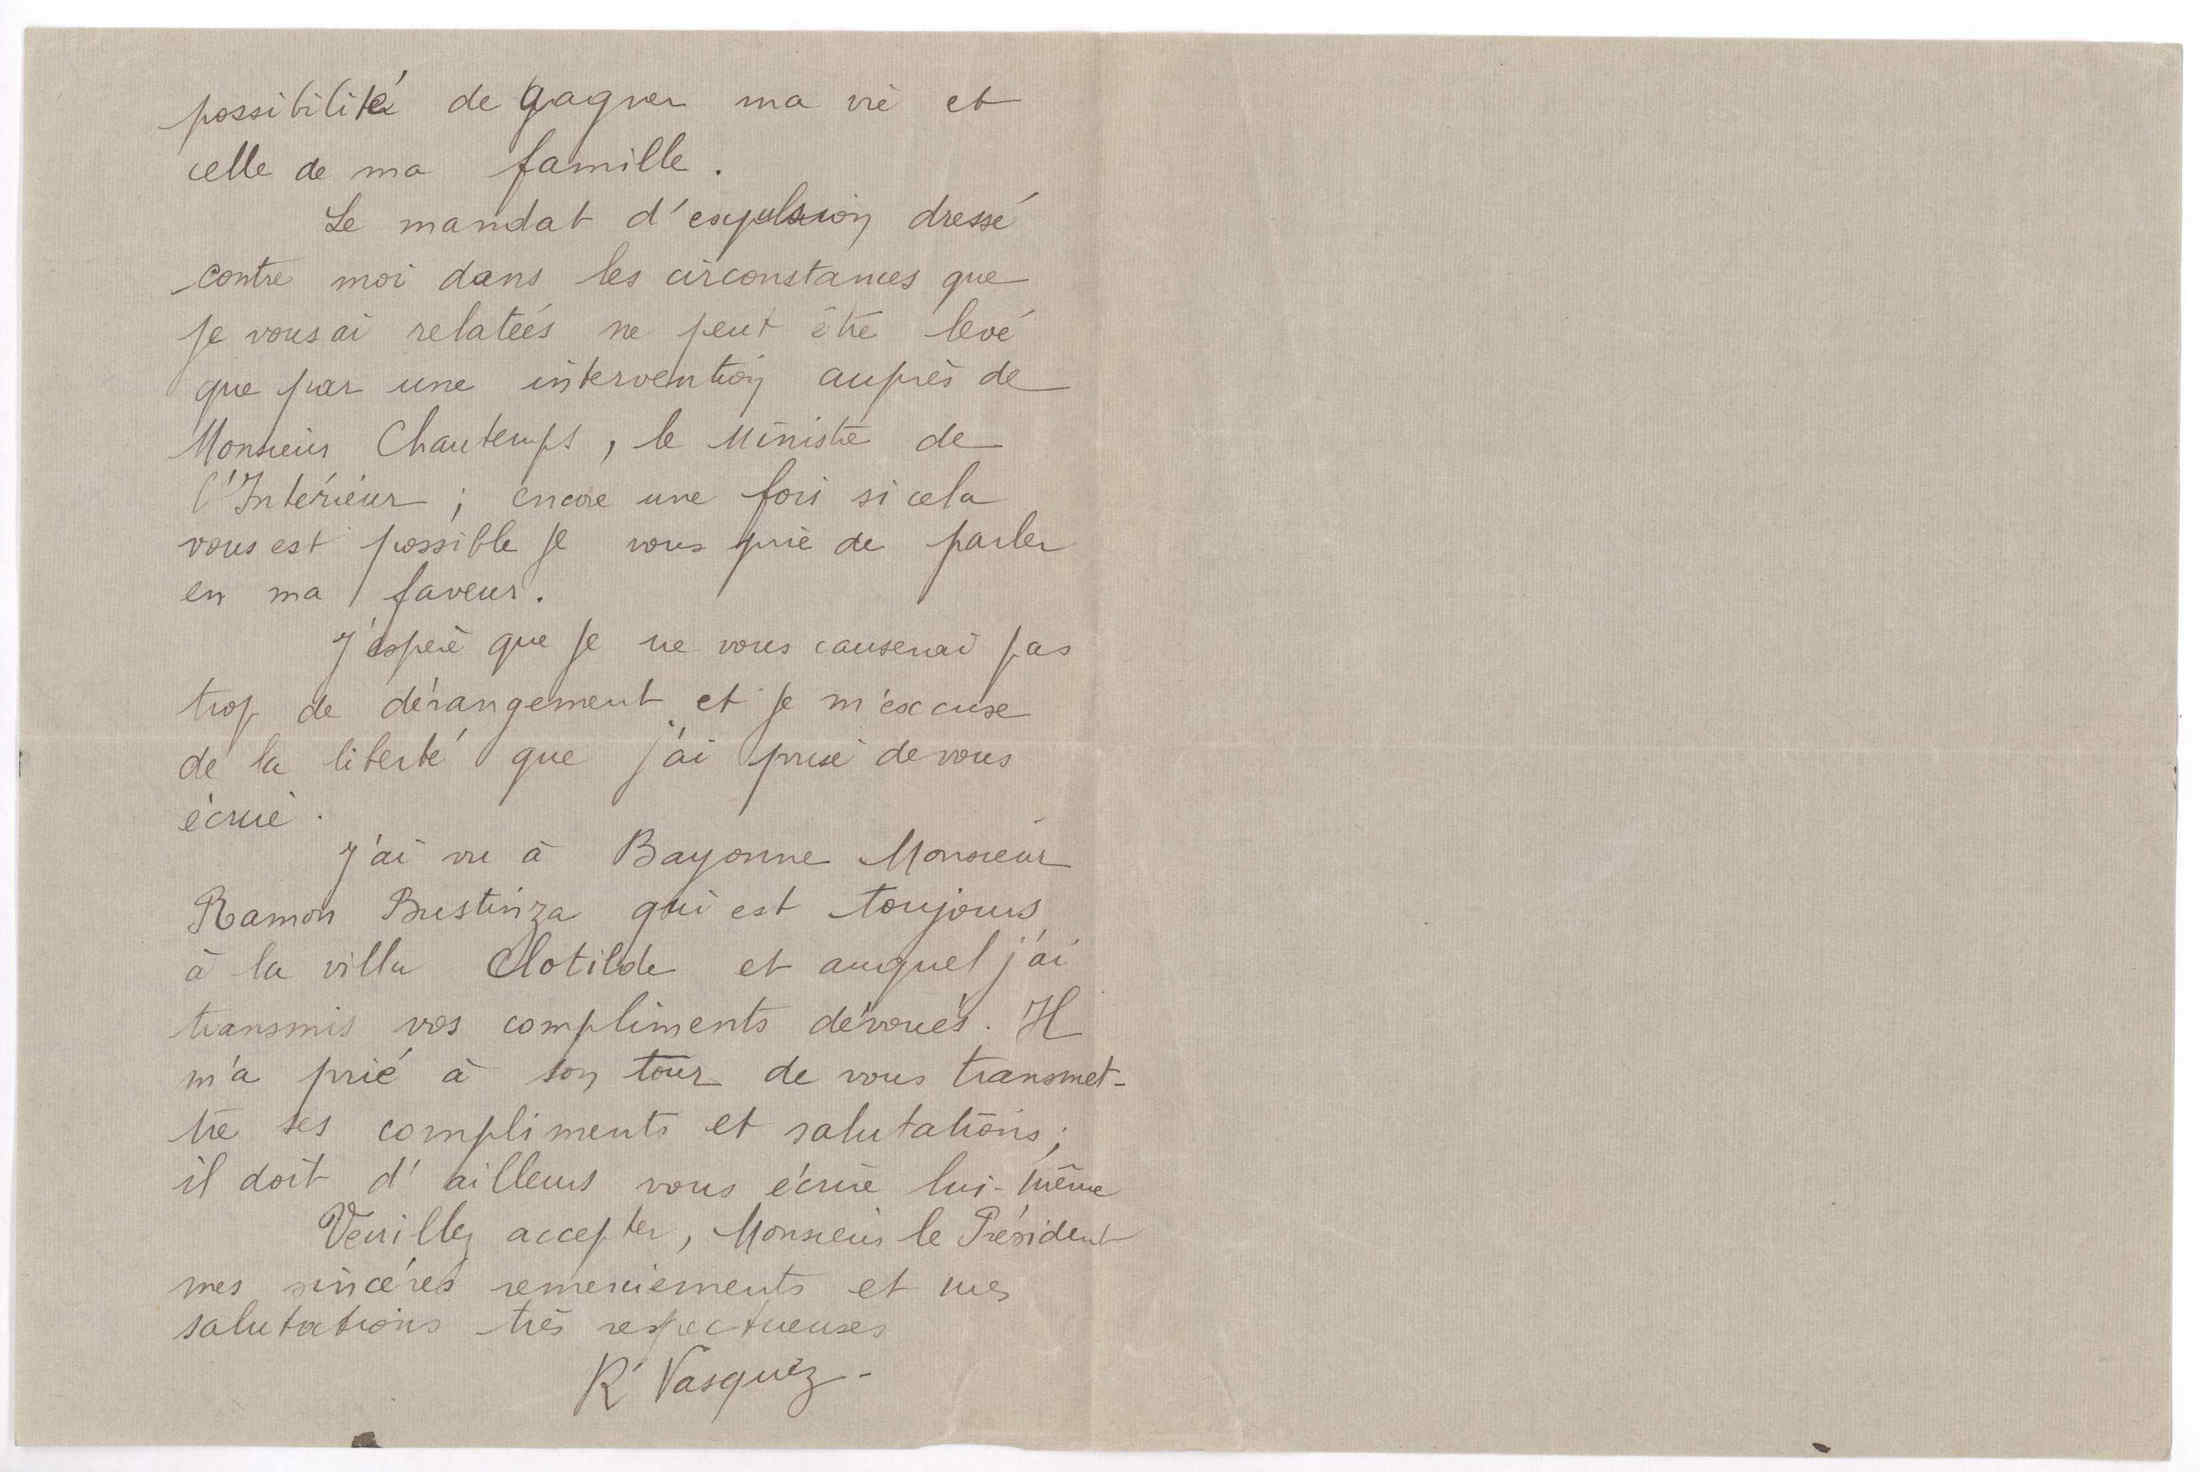 possibilité de gagner ma vie et
celle de ma famille.
Le mandat d'expulsion dressé
contre moi dans les circonstances que
je vous ai relatées ne peut être levé
que par une intervention auprès de
Monsieur Chautemps, le Ministre de
l'Intérieur ; encore une fois si cela
vous est possible je vous prie de parler
en ma faveur.
J'espère que je ne vous causerai pas
trop de dérangement et je m'excuse
de la liberté que j'ai prise de vous
écrire.
J'ai vu à Bayonne Monsieur
Ramon Bustinza qui est toujours
à la villa Clotilde et auquel j'ai
transmis vos compliments dévoués. Il
m'a prié à son tour de vous transmet-
tre ses compliments et salutations ;
il doit d'ailleurs vous écrire lui-même
Veuillez accepter, Monsieur le Président
mes sincères remerciements et mes
salutations très respectueuses
R Vasquez -